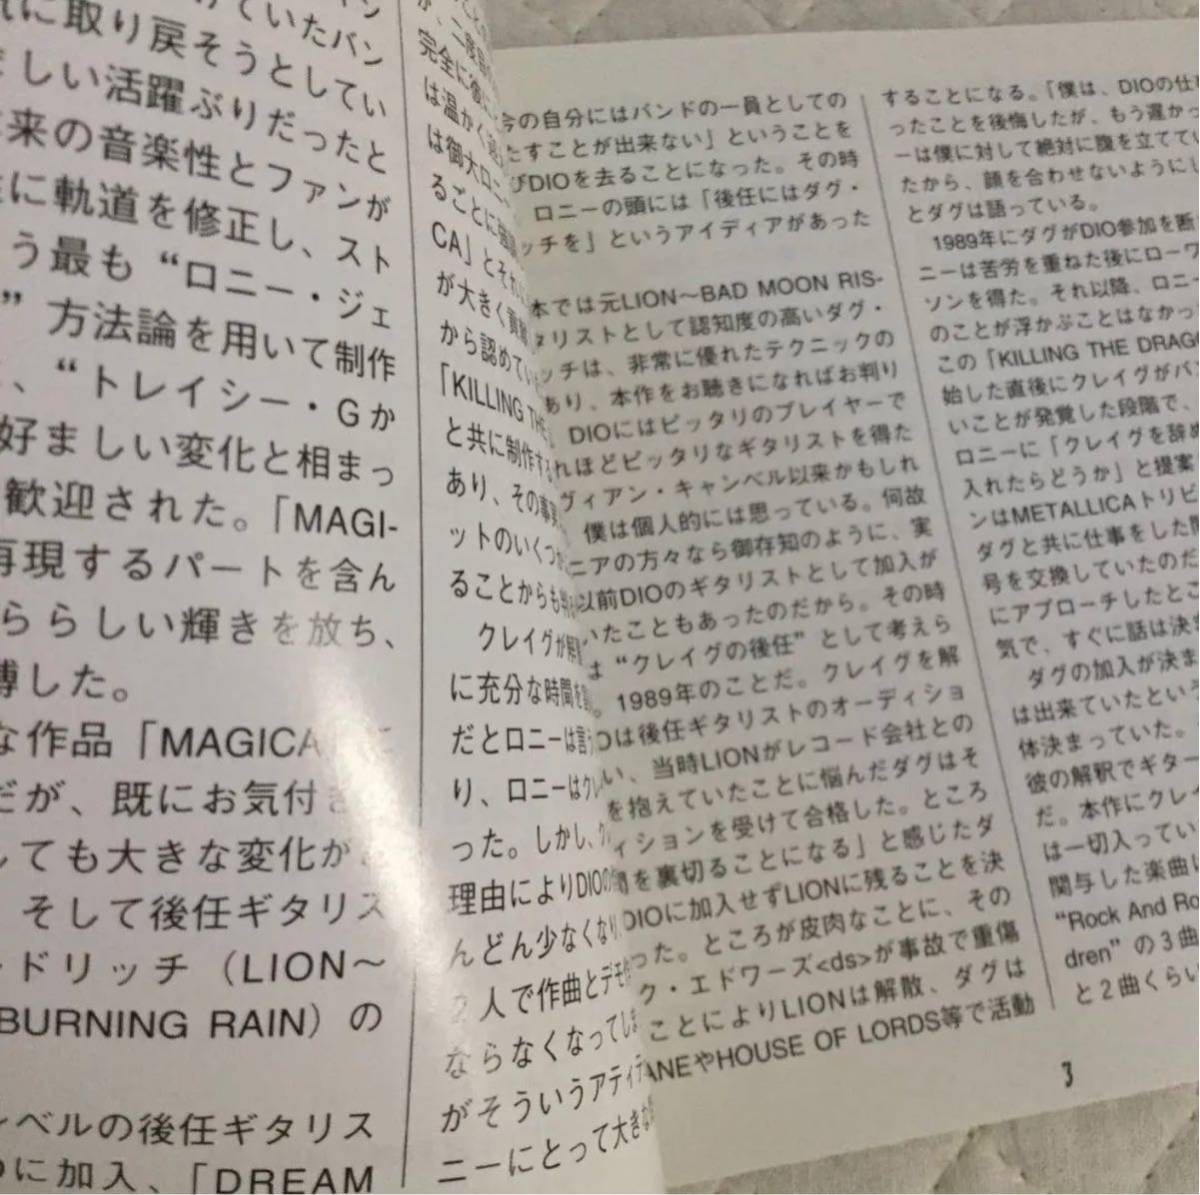 ていたバン
に取り戻そうとしてい
しい活躍ぶりだったと
来の音楽性とファンが
に軌道を修正し、スト
う最も“ロニー・ジェ
” 方法論を用いて制作
、“トレイシー・Gか
好ましい変化と相まっ
歓迎された。「MAGI-
再現するパートを含ん
らしい輝きを放ち、
した。
な作品「MAGICA
だが、既にお気付き
しても大きな変化が
そして後任ギタリス
ドリッチ（LION〜
BURNING RAIN）の
ベルの後任ギタリス
に加入、「DREAM
完全に
は温かく
は御大ロニー
ることに
CA」とそれ
が大きく貢献
から認めてい
「KILLING THE
と共に制作する
あり、その事実
ットのいくつか
ることからも
クレイグが解雇
に充分な時間を
だとロニーは言う
り、ロニーはクレ
った。しかし、ク
理由によりDIOの
んどん少なくなり、
2人で作曲とデモ
ならなくなってしま
がそういうアティテ
ニーにとって大きな
今の自分にはバンドの一員としての
たすことが出来ない」ということを
びDIOを去ることになった。その時
ロニーの頭には「後任にはダグ・
ッチを」というアイディアがあった
本では元LION〜BAD MOON RIS-
タリストとして認知度の高いダグ・
ッチは、非常に優れたテクニックの
あり、本作をお聴きになればお判り
DIOにはピッタリのプレイヤーで
れほどピッタリなギタリストを得た
ヴィアン・キャンベル以来かもしれ
僕は個人的には思っている。何故
ニアの方々なら御存知のように、実
以前DIOのギタリストとして加入が
いたこともあったのだから。その時
は“クレイグの後任”として考えら
1989年のことだ。クレイグを解
Oは後任ギタリストのオーディショ
い、当時LIONがレコード会社との
を抱えていたことに悩んだダグはそ
ィションを受けて合格した。ところ
を裏切ることになる」と感じたダ
DIOに加入せずLIONに残ることを決
った。ところが皮肉なことに、その
ク・エドワーズ<ds>が事故で重傷
ことによりLIONは解散、ダグは
ANEやHOUSE OF LORDS等で活動
することになる。「僕は、DIOの仕事
ったことを後悔したが、もう遅かっ
ーは僕に対して絶対に腹を立ててい
たから、顔を合わせないようにし
とダグは語っている。
1989年にダグがDIO参加を断
ニーは苦労を重ねた後にローワ
ソンを得た。それ以降、ロニー
のことが浮かぶことはなかっ
この「KILLING THE DRAGO
始した直後にクレイグがバン
いことが発覚した段階で、
ロニーに「クレイグを辞め
入れたらどうか」と提案
ンはMETALLICAトリビ
ダグと共に仕事をした際
号を交換していたのだ
にアプローチしたとこ
気で、すぐに話は決ま
ダグの加入が決ま
は出来ていたという
体決まっていた。
彼の解釈でギター
だ。本作にクレイ
は一切入ってい
関与した楽曲は
“Rock And Ro
dren”の3曲
と2曲くらい
3